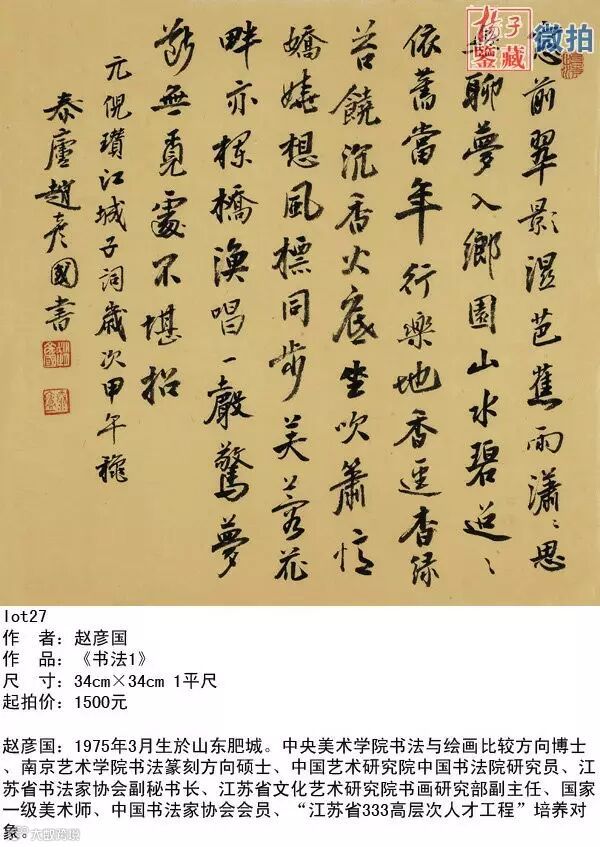 鉴藏 微拍
窓前翠影濕芭蕉雨瀟〻思
無聊夢入鄉園山水碧迢〻
依舊當年行樂地香逕杳緑
苔饒沉香火底坐吹簫憶
嬌嬈想風標同步芙蓉花
畔赤欄橋漁唱一聲驚夢
斷無覓處不堪招
元倪瓚江城子詞歲次甲午穐
泰廬趙彥國書
lot27
作 者：赵彦国
作 品：《书法1》
尺 寸：34cm×34cm 1平尺
起拍价：1500元
赵彦国：1975年3月生於山东肥城。中央美术学院书法与绘画比较方向博士
、南京艺术学院书法篆刻方向硕士、中国艺术研究院中国书法院研究员、江
苏省书法家协会副秘书长、江苏省文化艺术研究院书画研究部副主任、国家
一级美术师、中国书法家协会会员、“江苏省333高层次人才工程”培养对
象。